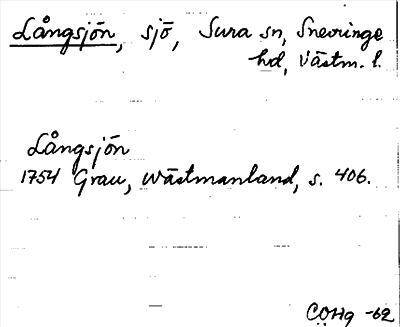 Långsjön, sjö, Sura sn, Snevringe
hd, Västm. l.
Långsjön
1754 Grau, Wästmanland, s. 406.
COHg -62